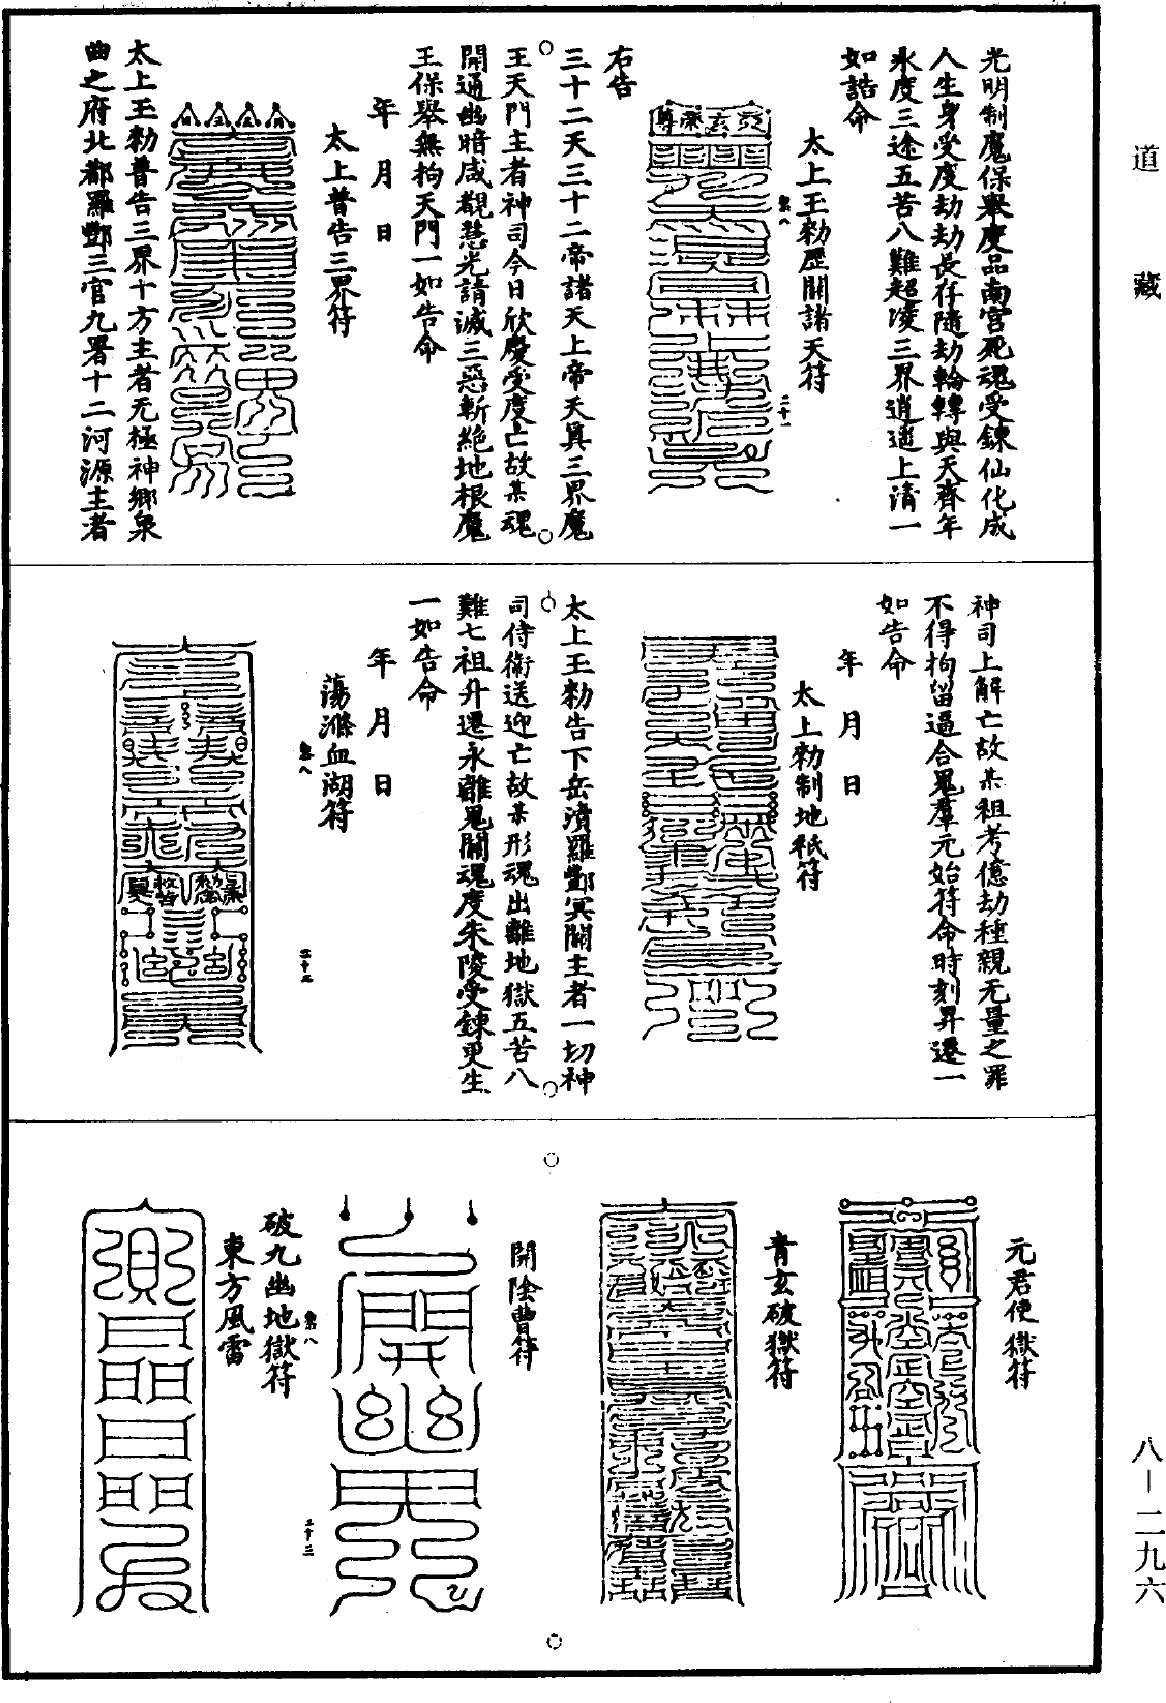 道藏
光明制魔保舉度品南宮死魂受鍊仙化成
人生身受度劫劫長存隨劫輪轉與天齊年
永度三途五苦八難超凌三界逍遙上清一
如誥命
太上玉勑歷關諸天符
右告
三十二天三十二帝諸天上帝天真三界魔
王天門主者神司今日欣慶受度亡故某魂
開通幽暗咸覩慧光請滅三惡斬絕地根魔
王保舉無拘天門一如告命
年月日
太上普告三界符
太上玉勑普告三界十方主者无極神鄉泉
曲之府北都羅酆三官九署十二河源主者
神司上解亡故某祖考億劫種親无量之罪
不得拘留逼合鬼羣元始符命時刻昇遷一
如告命
年月日
太上勑制地祇符
太上玉勑告下岳瀆羅酆冥關主者一切神
司侍衛送迎亡故某形魂出離地獄五苦八
難七祖升遷永離鬼關魂度朱陵受鍊更生
一如告命
年月日
蕩滌血湖符
元君使獄符
青玄破獄符
開陰曹符
破九幽地獄符
東方風雷
八—二九六